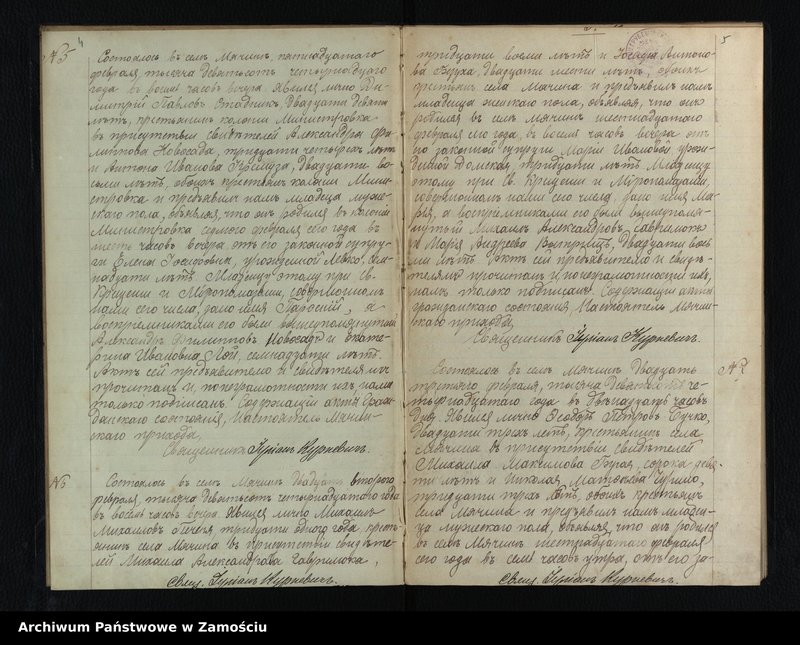 4
№5
Состоялось въ селѣ Мячинѣ, пятнадцатаго
февраля, тысяча девятьсотъ четырнадцатаго
года въ восемь часовъ вечера. Явился лично Ди-
митрій Павловъ двадцати девяти
лѣтъ, крестьянинъ колоніи Министровка
въ присутствіи свидѣтелей Александра Фи-
липпова Новосада, тридцати четырехъ лѣтъ
и Антона Иванова двадцати во-
сьми лѣтъ, обоихъ крестьянъ колоніи Мини-
стровка и предъявилъ намъ младенца муже-
скаго пола, объявляя, что онъ родился въ колоніи
Министровка седьмого февраля сего года въ
шесть часовъ вечера, отъ его законной супру-
ги Елены урожденной
надцати лѣтъ. Младенцу этому при Св.
Крещеніи и Мѵропомазаніи, совершенномъ
нами сего числа, дано имя а
воспріемниками его были вышеупомянутый
Александръ Филипповъ Новосадъ и Екате-
рина Ивановна семнадцати лѣтъ.
Актъ сей предъявителю и свидѣтелямъ
прочитанъ и, по неграмотности ихъ, нами
только подписанъ. Содержащій акты Граж-
данскаго состоянія, Настоятель Мячин-
скаго прихода,
Священникъ
Состоялось въ селѣ Мячинѣ двадцать второго
февраля, тысяча девятьсотъ четырнадцатаго года
въ восемь часовъ вечера. Явился лично Михаилъ
Михайловъ тридцати одного года, кресть-
янинъ села Мячина въ присутствіи свидѣте-
лей Михаила Александрова Гаврилюка,
Свящ.
5
тридцати восьми лѣтъ и Іосифа Антоно-
ва двадцати шести лѣтъ, обоихъ
крестьянъ села Мячина и предъявилъ намъ
младенца женскаго пола, объявляя, что онъ
родился въ селѣ Мячинѣ шестнадцатаго
февраля сего года, въ восемь часовъ вечера отъ
его законной супруги Маріи Ивановой урож-
денной тридцати лѣтъ. Младенцу
этому при Св. Крещеніи и Мѵропомазаніи,
совершенномъ нами сего числа, дано имя Ма-
рія, а воспріемниками его были вышеупомя-
нутый Михаилъ Александровъ Гаврилюкъ
и Марія Андреева двадцати восьми
лѣтъ. Актъ сей предъявителю и свидѣ-
телямъ прочитанъ и, по неграмотности ихъ,
нами только подписанъ. Содержащій акты
гражданскаго состоянія, Настоятель Мячин-
скаго прихода,
Священникъ
Состоялось въ селѣ Мячинѣ двадцать
третьяго февраля, тысяча девятьсотъ че-
тырнадцатаго года въ двѣнадцать часовъ
дня. Явился лично Ѳеодоръ Петровъ
двадцати трехъ лѣтъ, крестьянинъ села
Мячина въ присутствіи свидѣтелей
Михаила Максимова сорока девя-
ти лѣтъ и Николая
тридцати трехъ лѣтъ, обоихъ крестьянъ
села Мячина и предъявилъ намъ младен-
ца мужескаго пола, объявляя, что онъ родился
въ селѣ Мячинѣ шестнадцатаго февраля
сего года, въ семь часовъ утра, отъ его за-
Свящ.
Archiwum Państwowe w Zamościu